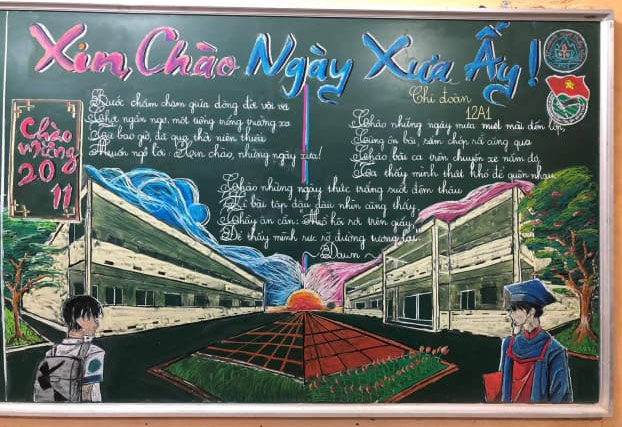 Xin Chào Ngày Xưa Ấy!
Chi đoàn
12A1
Chào
Mừng
20
11
Bước chầm chậm giữa dòng đời vội vã
Chợt ngẩn ngơ, một tiếng trống trường xa
Bao giờ, đã qua, thời niên thiếu
Muốn ngỏ lời: Xin chào, những ngày xưa!
Chào những ngày mưa miệt mài đến lớp,
Cùng ôn bài, sấm chớp nổ cùng qua
Chào bài ca trên chuyến xe năm đó,
thấy mình thật khó để quên nhau
Chào những ngày thức trắng suốt đêm thâu
Vì bài tập dẫu dài nhìn cũng thấy
Thầy ân cần: mồ hôi rơi trên giấy
Để thấy mình rực rỡ đường tương lai
~ Dawn ~